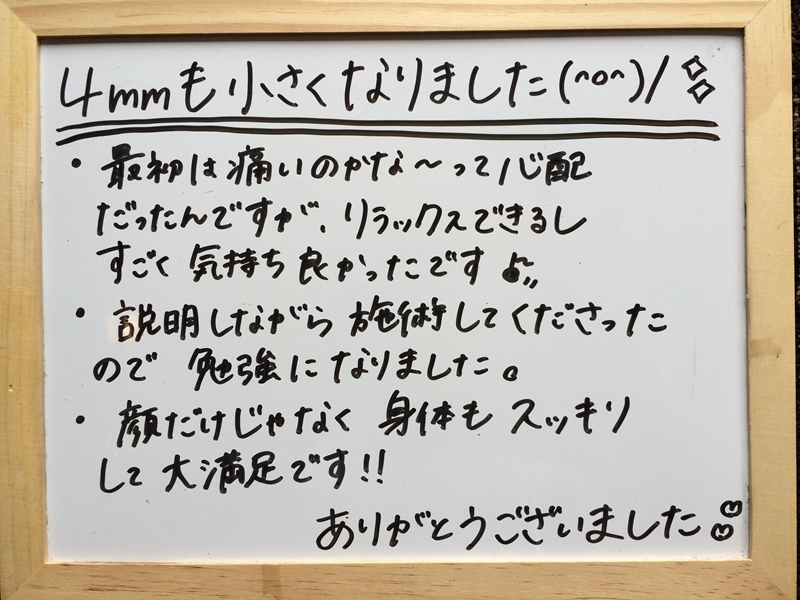 4mmも小さくなりました(^o^)/
・最初は痛いのかな〜って心配
だったんですが、リラックスできるし
すごく 気持ち良かったです♪
・説明しながら 施術してくださった
ので 勉強になりました。
・顔だけじゃなく 身体も スッキリ
して 大満足です!!
ありがとうございました